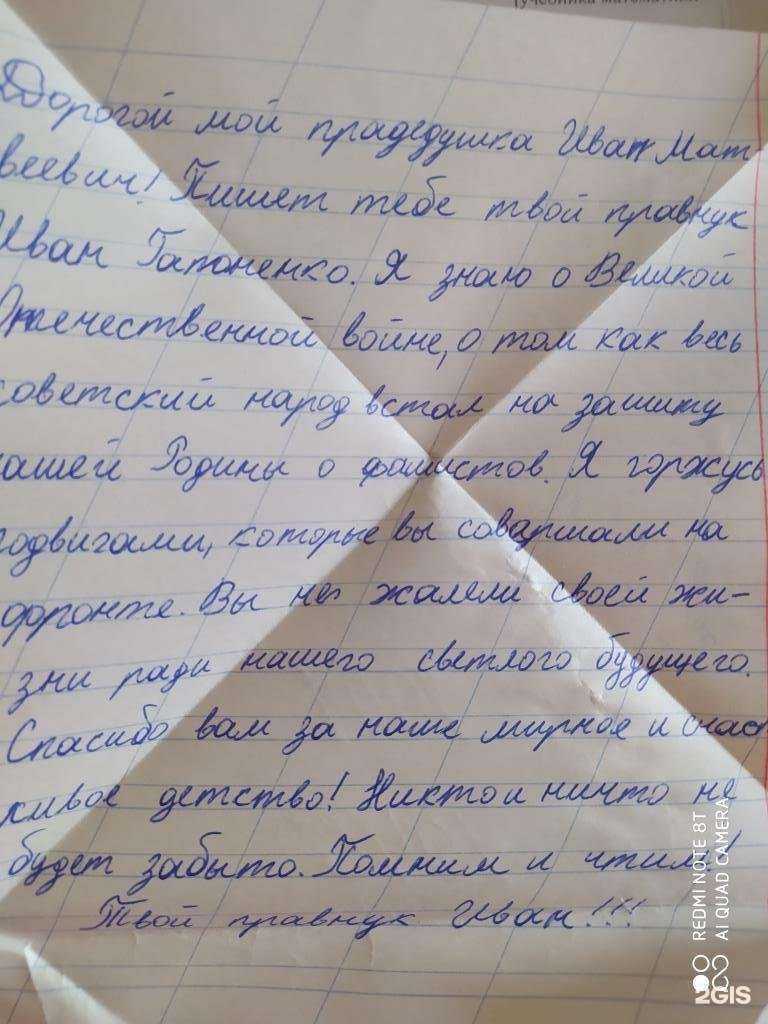 (учебника математики
Дорогой мой прадедушка Иван Мат
веевич! Пишет тебе твой правнук
Иван Гапоненко. Я знаю о Великой
Отечественной войне, о том как весь
советский народ встал на зашиту
нашей Родины о фашистов. Я горжусь
подвигами, которые вы совершали на
фронте. Вы не жалели своей жи-
зни ради нашего светлого будущего.
Спасибо вам за наше мирное и счаст
ливое детство! Никто и ничто не
будет забыто. Помним и чтим!!
Твой правнук Иван!!!
REDMI NOTE 8T
AI QUAD CAMERA
2GIS